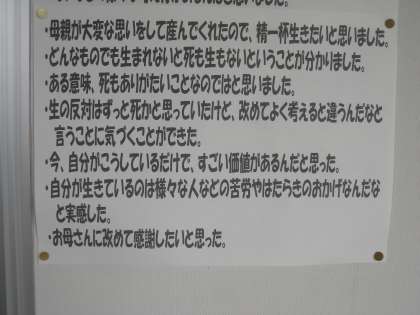 ・母親が大変な思いをして産んでくれたので、精一杯生きたいと思いました。
・どんなものでも生まれないと死も生もないということが分かりました。
・ある意味、死もありがたいことなのではと思いました。
・生の反対はずっと死かと思っていたけど、改めてよく考えると違うんだなと
言うことに気づくことができた。
・今、自分がこうしているだけで、すごい価値があるんだと思った。
・自分が生きているのは様々な人などの苦労やはたらきのおかげなんだな
と実感した。
・お母さんに改めて感謝したいと思った。